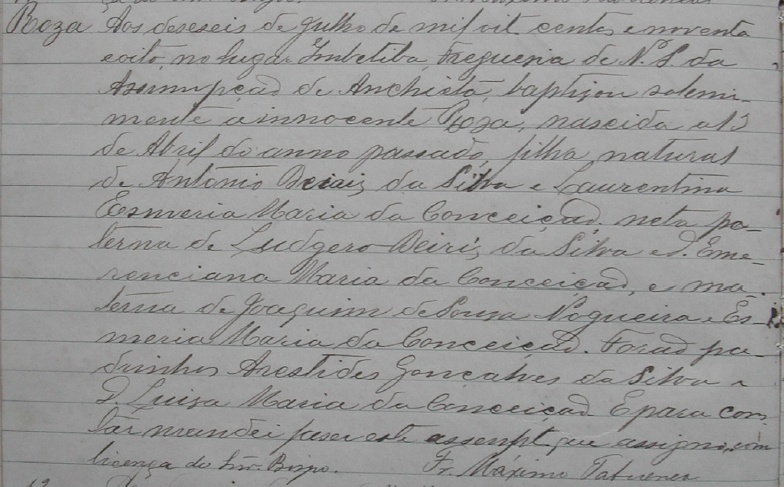 Roza Aos deseseis de Julho de mil oit centos e noventa
e oito, no lugar Imbetiba, Freguesia de N. S. da
Assumpçaõ de Anchieta, baptizou solemni-
mente a innocente Roza, nascida a 13
de Abril do anno passado, filha natural
de Antonio da Silva e Laurentina
Esmeria Maria da Conceiçaõ. neta pa-
terna de Ludgero da Silva e D. Eme-
renciana Maria da Conceiçaõ, e ma-
terna de Joaquim de Souza Nogueira e Es-
meria Maria da Conceiçaõ. Foraõ pa-
drinhos Arestides Gonçalves da Silva e
D Luiza Maria da Conceiçaõ E para cons-
tar mandei faser este que assigno, com
licença do Snr. Bispo. Fr. Máximo